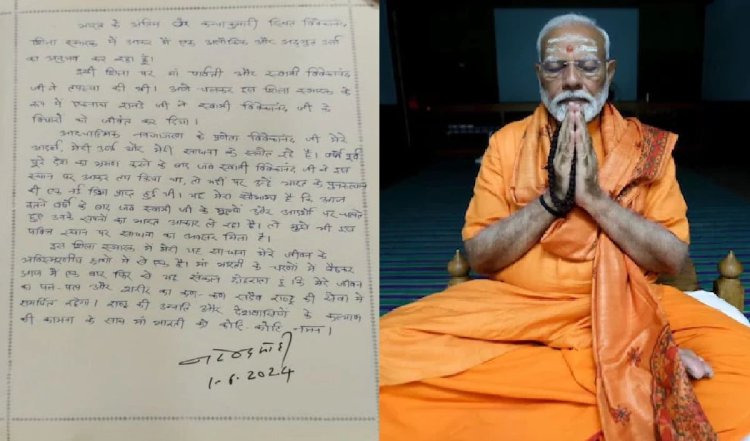 भारत के अंतिम छोर कन्याकुमारी स्थित विवेकानंद
शिला स्मारक में आकर मैं एक अलौकिक और अद्भुत ऊर्जा
का अनुभव कर रहा हूं।
इसी शिला पर मां पार्वती और स्वामी विवेकानंद
जी ने तपस्या की थी। आगे चलकर इस शिला स्मारक के
रूप में एकनाथ रानडे जी ने स्वामी विवेकानंद जी के
विचारों को जीवंत कर दिया।
आध्यात्मिक नवजागरण के प्रणेता विवेकानंद जी मेरे
आदर्श, मेरी ऊर्जा और मेरी साधना के स्रोत रहे हैं।
पूरे देश का भ्रमण करने के बाद जब स्वामी विवेकानंद जी ने इस
स्थान पर आकर तप किया था, तो यहीं पर उन्हें भारत के पुनरुत्थान
की एक नई दिशा प्राप्त हुई थी। यह मेरा सौभाग्य है कि आज
इतने वर्षों के बाद जब स्वामी जी के मूल्यों और आदर्शों पर चलते
हुए उनके सपनों का भारत आकार ले रहा है। तो मुझे भी इस
पवित्र स्थान पर साधना का अवसर मिला है।
इस शिला स्मारक में मेरी यह साधना मेरे जीवन के
अविस्मरणीय क्षणों में से एक है। मां भारती के चरणों में बैठकर
आज मैं एक बार फिर से यह संकल्प दोहराता हूं कि मेरे जीवन
का पल-पल और शरीर का कण-कण सदैव राष्ट्र की सेवा में
समर्पित रहेगा। राष्ट्र की उन्नति और देशवासियों के कल्याण
की कामना के साथ मां भारती को कोटि-कोटि नमन।
नरेन्द्र मोदी
1.6.2024